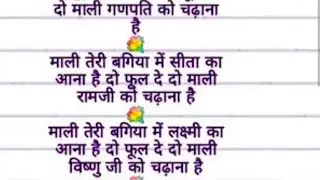 दो माली गणपति को चढ़ाना
है
माली तेरी बगिया में सीता का
आना है दो फूल दे दो माली
रामजी को चढ़ाना है
माली तेरी बगिया में लक्ष्मी का
आना है दो फूल दे दो माली
विष्णु जी को चढ़ाना है